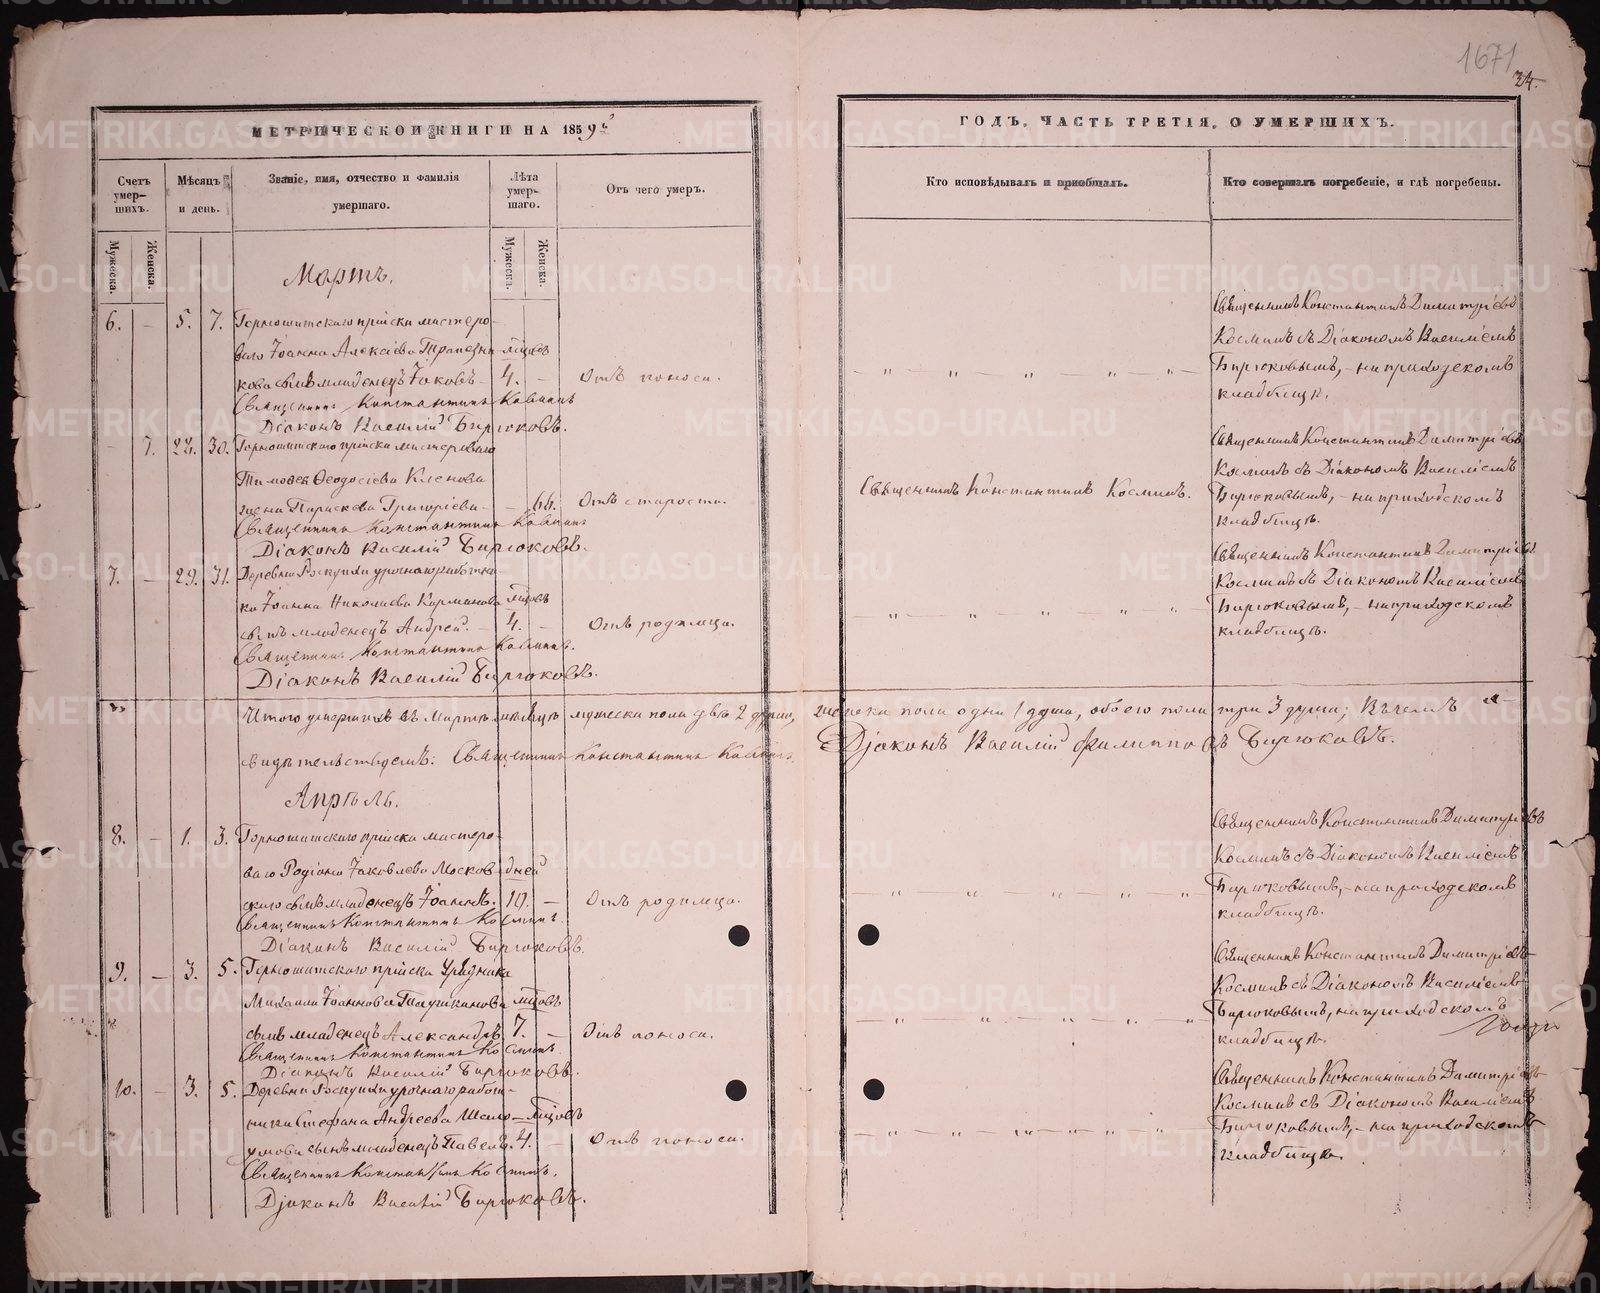 1671
34.
МЕТРИЧЕСКОЙ КНИГИ НА 1859й
Счетъ умер-шихъ.
Мѣсяцъ и день.
Званіе, имя, отчество и фамилія умершаго.
Лѣта умер-шаго.
Отъ чего умеръ.
Мужеска.
Женска.
Мужеска.
Женска.
Мартъ.
6. — 5. 7. Горнощитскаго пріиска мастеро-
ваго Іоанна Алексіева Трапезни- мѣсцовъ
кова сынъ младенецъ Іаковъ — 4. — Отъ поноса.
Священникъ Константинъ Косминъ
Діаконъ Василій Бирюковъ.
— 7. 28. 30. Горнощитскаго пріиска мастероваго
Тимофея Ѳеодосіева Кленова
жена Параскева Григоріева — — 66. Отъ старости.
Священникъ Константинъ Косминъ
Діаконъ Василій Бирюковъ.
7. — 29. 31. Деревни урочнаго работни-
ка Іоанна Николаева Карманова мѣсцовъ
сынъ младенецъ Андрей. — 4. — Отъ родимца.
Священникъ Константинъ Косминъ.
Діаконъ Василій Бирюковъ.
Итого умершихъ въ Мартѣ мѣсяцѣ мужеска пола два 2 души,
свидѣтельствуемъ: Священникъ Константинъ Косминъ.
Апрѣль.
8. — 1. 3. Горнощитскаго пріиска мастеро-
ваго Родіона Іаковлева Москов- дней
скаго сынъ младенецъ Іоаннъ. 10. — Отъ родимца.
Священникъ Константинъ Косминъ.
Діаконъ Василій Бирюковъ.
9. — 3. 5. Горнощитскаго пріиска Урядника
Михаила Іоаннова мѣсцовъ
сынъ младенецъ Александръ 7. — Отъ поноса.
Священникъ Константинъ Косминъ.
Діаконъ Василій Бирюковъ.
10. — 3. 5. Деревни урочнаго работ-
ника Стефана Андреева Шело- мѣсцовъ
умова сынъ младенецъ Павелъ. 4. — Отъ поноса.
Священникъ Константинъ Косминъ.
Діаконъ Василій Бирюковъ.
ГОДЪ, ЧАСТЬ ТРЕТІЯ, О УМЕРШИХЪ.
Кто исповѣдывалъ и пріобщалъ.
Кто совершалъ погребеніе, и гдѣ погребены.
Священникъ Константинъ Димитріевъ
Косминъ съ Діакономъ Василіемъ
— „ — „ — „ — „ — „ — Бирюковымъ, — на приходскомъ
кладбищѣ.
Священникъ Константинъ Димитріевъ
Косминъ съ Діакономъ Василіемъ
Священникъ Константинъ Косминъ. Бирюковымъ, — на приходскомъ
кладбищѣ.
Священникъ Константинъ Димитріевъ
Косминъ съ Діакономъ Василіемъ
— „ — „ — „ — „ — „ — Бирюковымъ, — на приходскомъ
кладбищѣ.
женска пола одна 1 душа, обоего пола три 3 души; въ чемъ и
Діаконъ Василій Филипповъ Бирюковъ.
Священникъ Константинъ Димитріевъ
Косминъ съ Діакономъ Василіемъ
— „ — „ — „ — „ — „ — Бирюковымъ, — на приходскомъ
кладбищѣ.
Священникъ Константинъ Димитріевъ
Косминъ съ Діакономъ Василіемъ
— „ — „ — „ — „ — „ — Бирюковымъ, на приходскомъ
кладбищѣ.
Священникъ Константинъ Димитріевъ
Косминъ съ Діакономъ Василіемъ
— „ — „ — „ — „ — „ — Бирюковымъ, — на приходскомъ
кладбищѣ.
METRIKI.GASO-URAL.RU